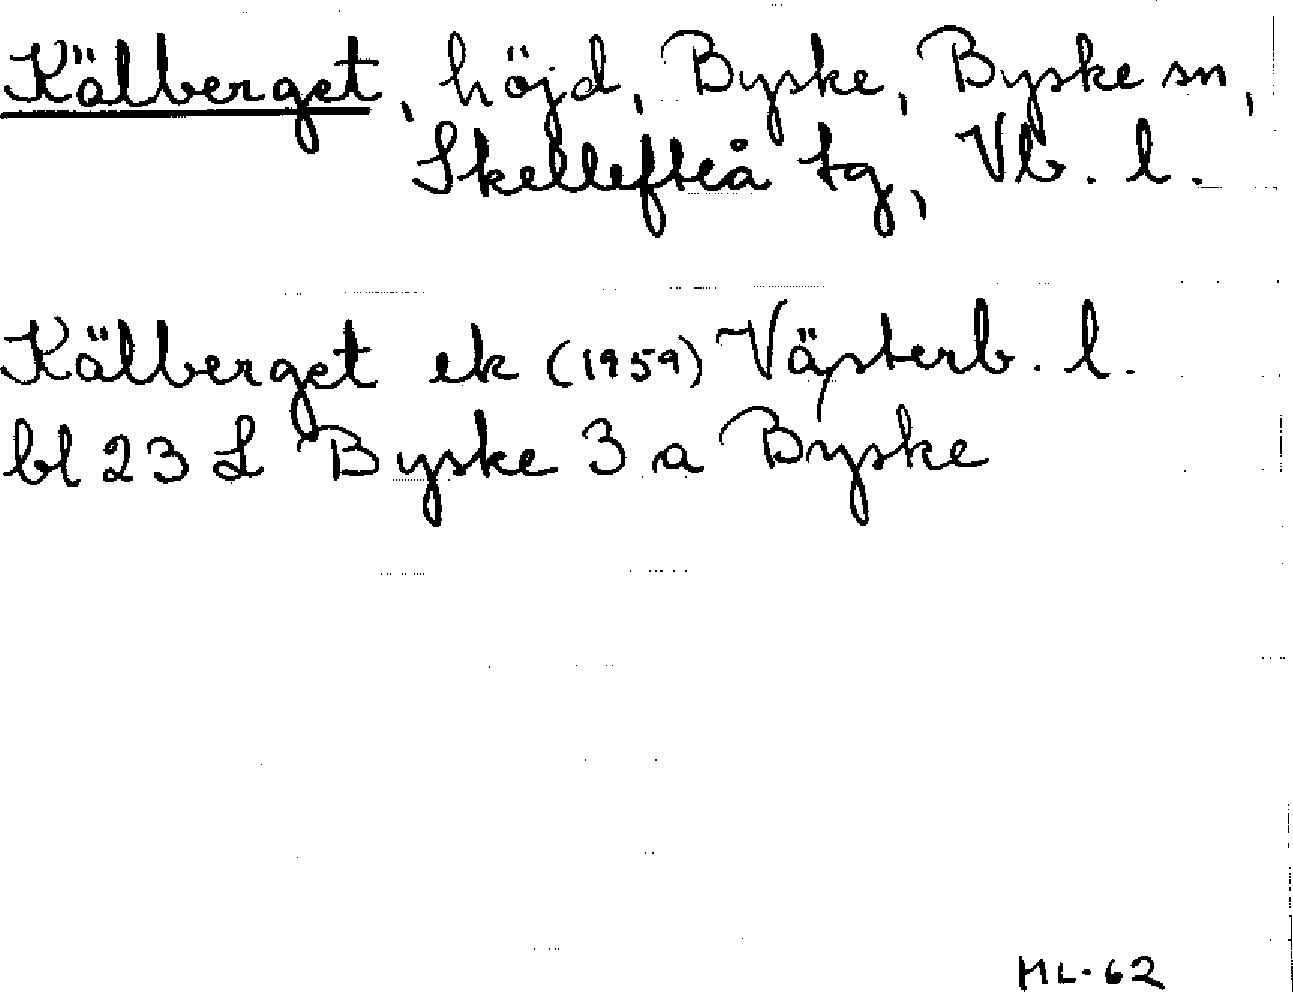 Kälberget, höjd, Byske, Byske sn,
Skellefteå tg, Vb. l.
Kälberget ek (1959) Västerb. l.
bl 23 L Byske 3 a Byske
ML-62